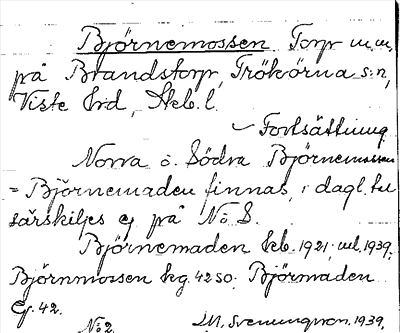 Björnemossen. Torp m.m.
på Brandstorp, Trökörna s:n,
Viste hrd, Skb. l.
Fortsättning
Norra o. Södra Björnemossen
= Björnemaden finnas, i dagl. tal
särskiljes ej på N o S.
Björnemaden kb. 1921; vul. 1939.
Björnmossen kg. 42 SO. Björmaden
Eg. 42.
No 2. M. Svenungsson. 1939.